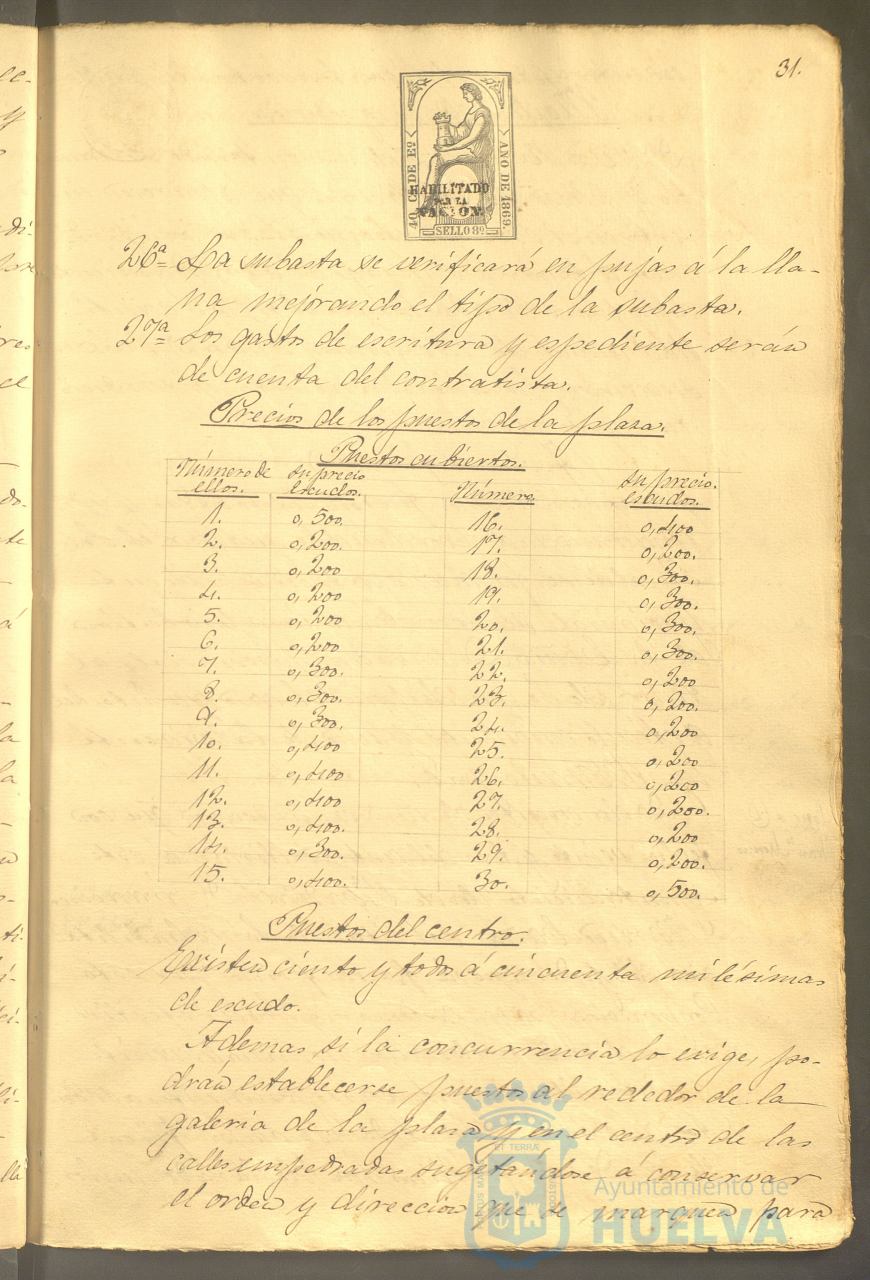 31.
40 Cs. DE Eo.
AÑO DE 1869.
HABILITADO
POR LA
NACION.
SELLO 8º
26ª = La subasta se verificará en pujas á la lla-
na mejorando el tipo de la subasta.
27ª = Los gastos de escritura y espediente serán
de cuenta del contratista.
Precios de los puestos de la plaza.
Puestos cubiertos.
Número de ellos. su precio escudos. Número. su precio. escudos.
1. 0,500. 16. 0,400
2. 0,200. 17. 0,200.
3. 0,200 18. 0,300.
4. 0,200 19. 0,300.
5. 0,200 20. 0,300.
6. 0,200 21. 0,300.
7. 0,300. 22. 0,200
8. 0,300. 23. 0,200.
9. 0,300. 24. 0,200
10. 0,400 25. 0,200
11. 0,400 26. 0,200
12. 0,400 27. 0,200.
13. 0,400. 28. 0,200
14. 0,300. 29. 0,200.
15. 0,400. 30. 0,500.
Puestos del centro.
Existen ciento y todos á cincuenta milésimas
de escudo.
Ademas si la concurrencia lo exige, po-
drán establecerse puestos al rededor de la
galeria de la plaza y en el centro de las
calles empedradas sugetandose á conservar
el orden y direccion que se marquen para
Ayuntamiento de
HUELVA